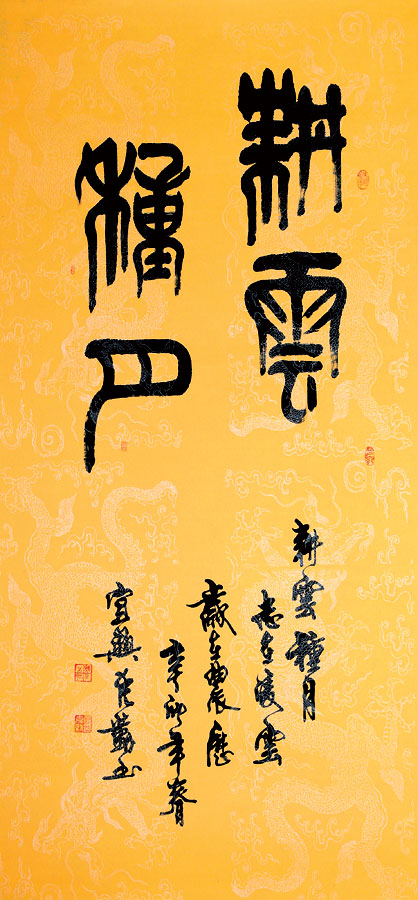 耕雲
種月
耕雲種月
志在凌雲
歲在曲辰歷
辛卯年春
宜興
書